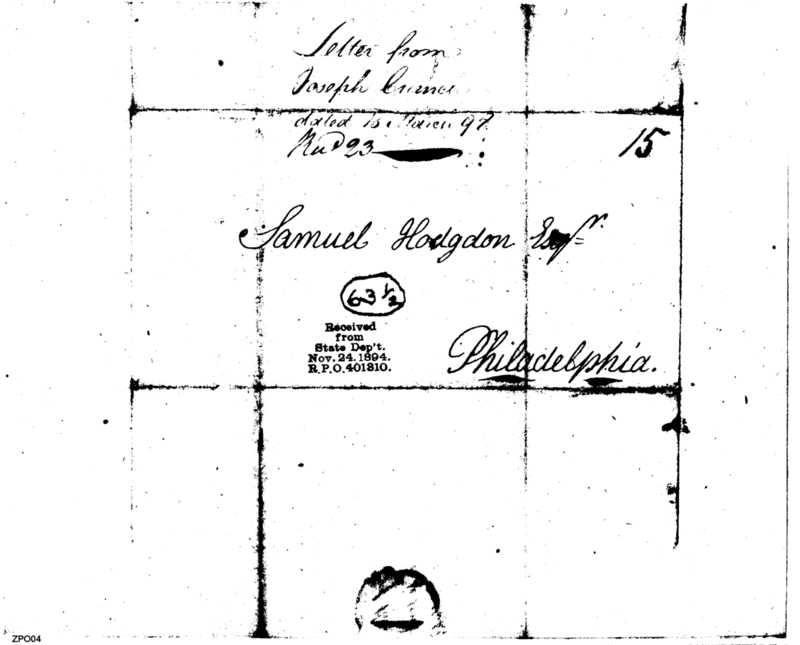 Letter from
Joseph
dated 15 March 97
Recd 23
15
Samuel Hodgdon Esqr.
63 1/2
Received
from
State Dep't.
Nov. 24. 1894.
R.P.O. 401810.
Philadelphia.
ZPO04